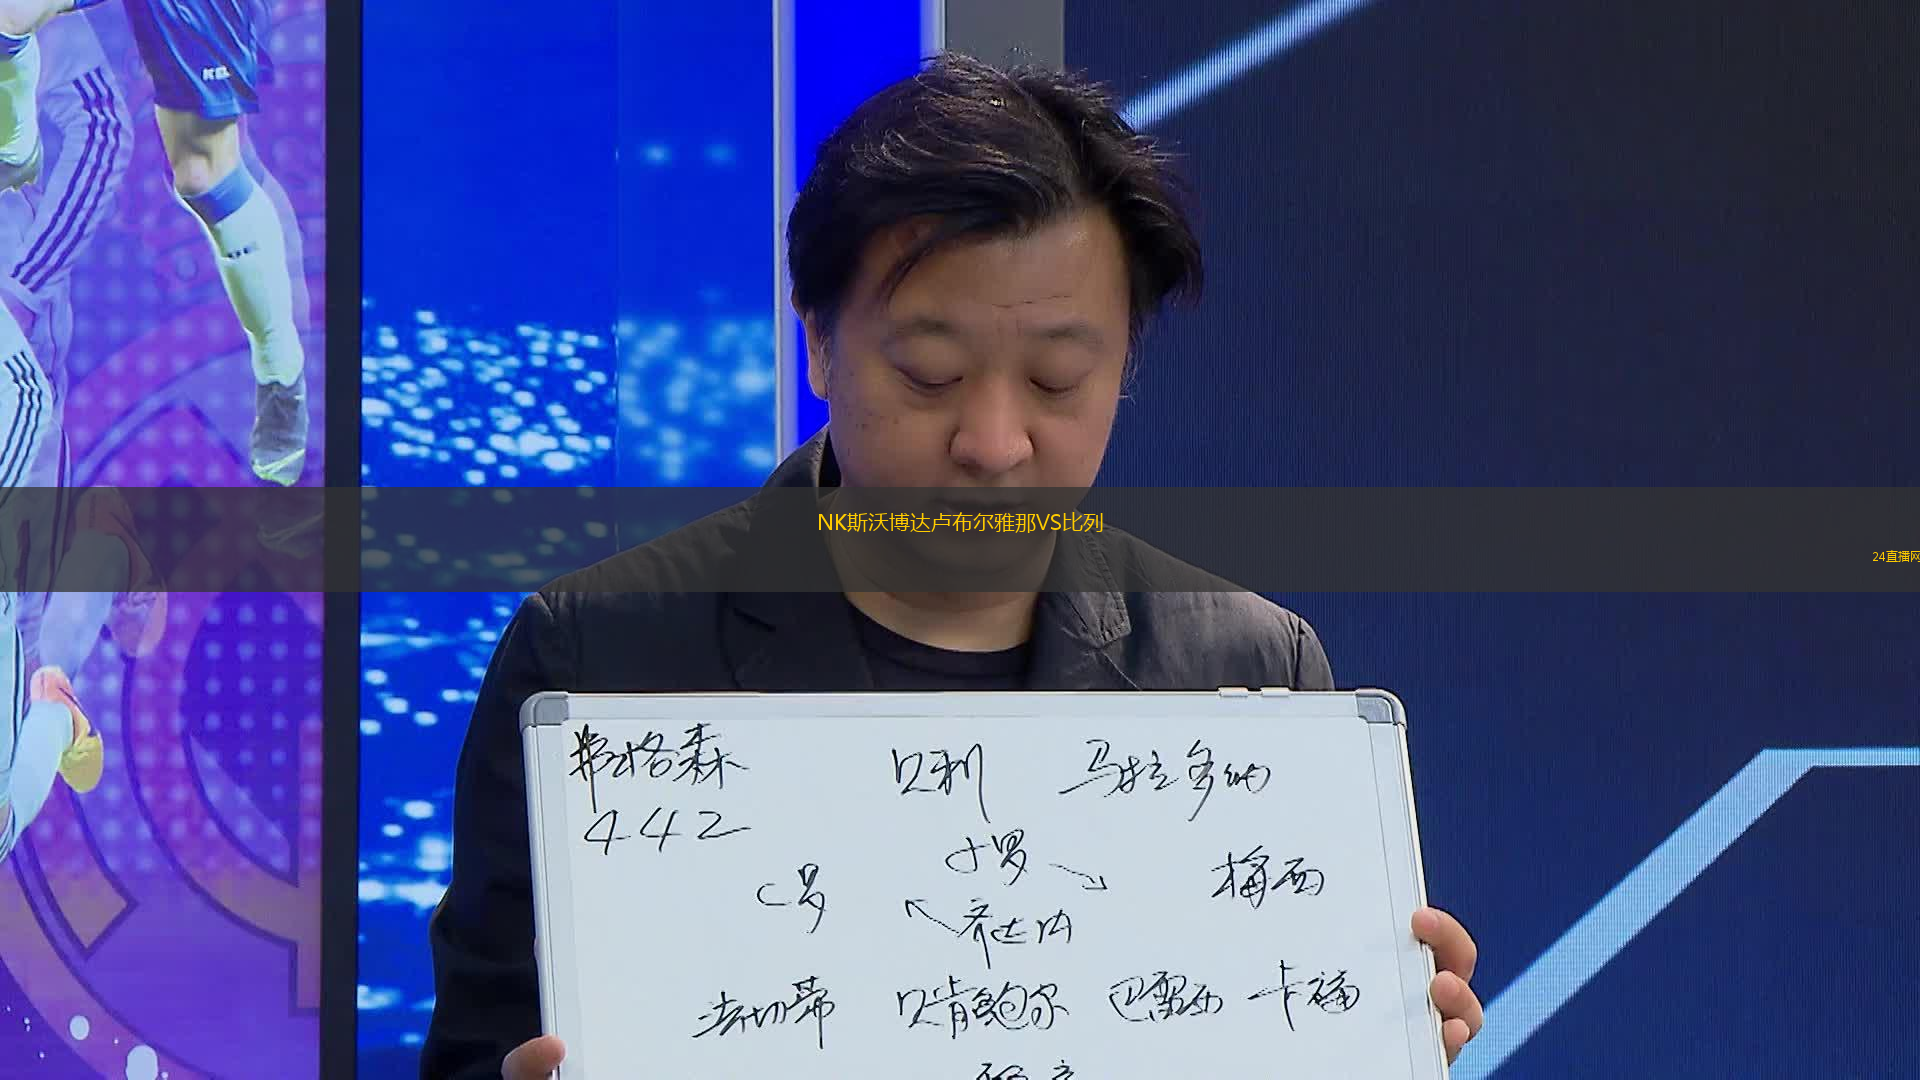 NK斯沃博达卢布尔雅那VS比列
24直播网
弗格森 贝利 马拉多纳
442
小罗
C罗 梅西
齐达内
法切蒂 贝肯鲍尔 巴雷西 卡福